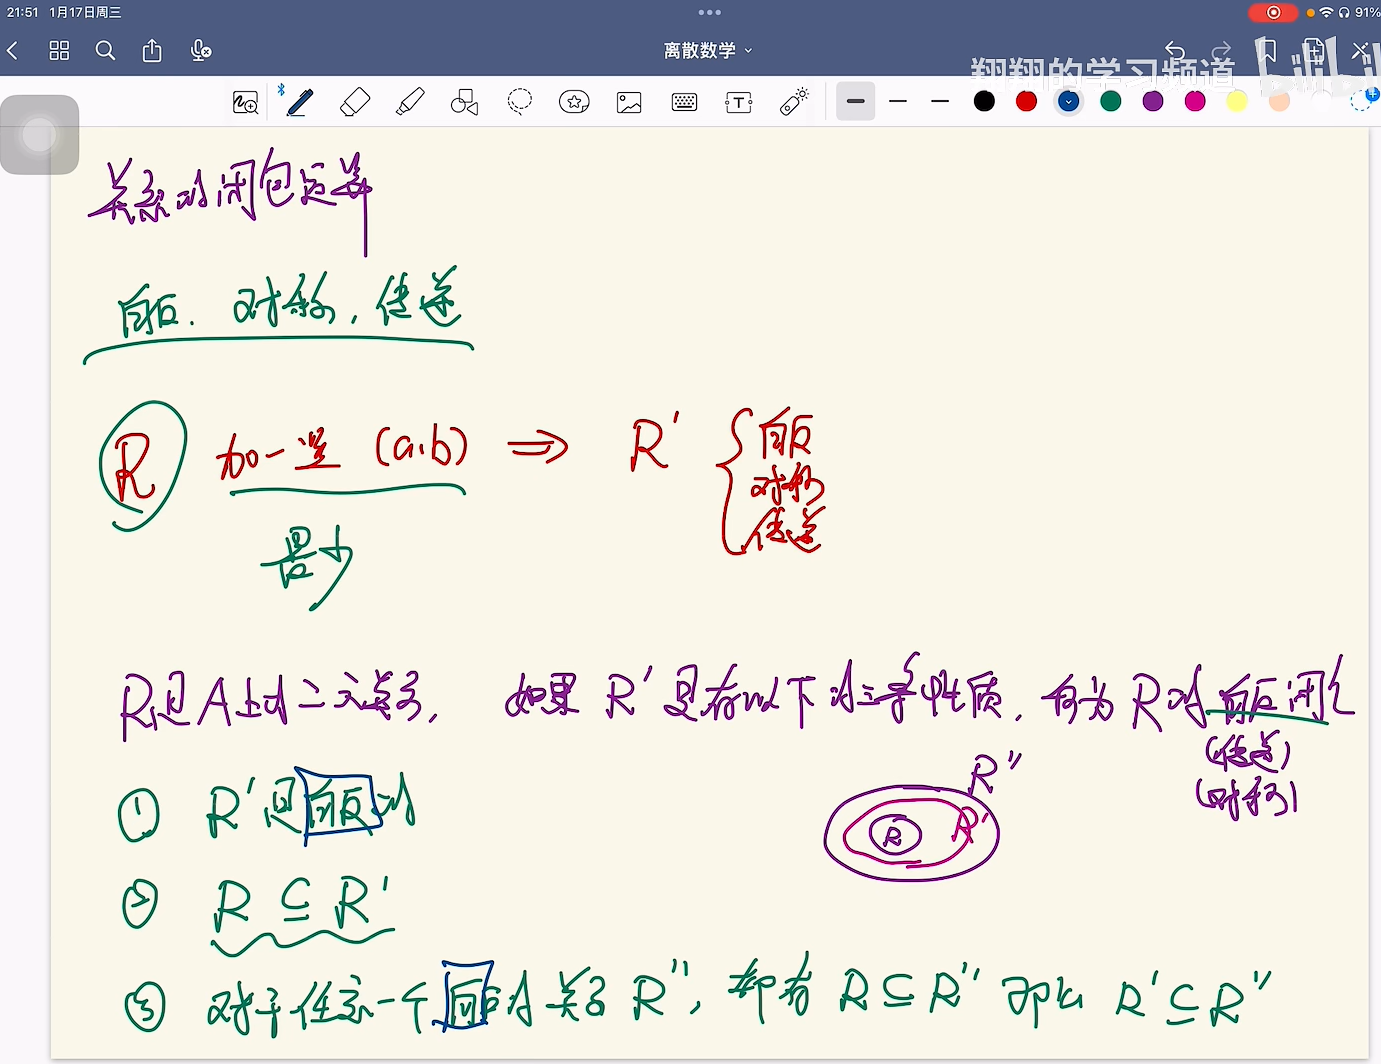 21:51 1月17日周三
91%
离散数学
翔翔的学习频道 bilibili
关系的闭包运算
自反. 对称, 传递
R 加一些 (a,b) ⇒ R' { 自反
对称
传递
最少
R是A上的二元关系, 如果 R' 具有以下的三条性质, 称为 R的自反闭包
(传递)
(对称)
R''
R R'
① R'是自反的
② R ⊆ R'
③ 对于任意一个自反的关系 R'', 都有 R ⊆ R'' 那么 R' ⊆ R''